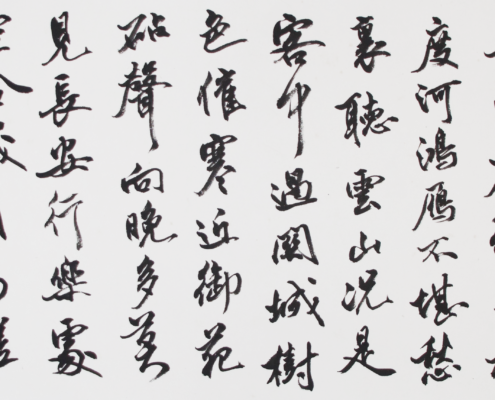 度河鴻雁不堪愁
裏聽雲山況是
客中過關城樹
色催寒近御苑
砧聲向晚多莫
見長安行樂處